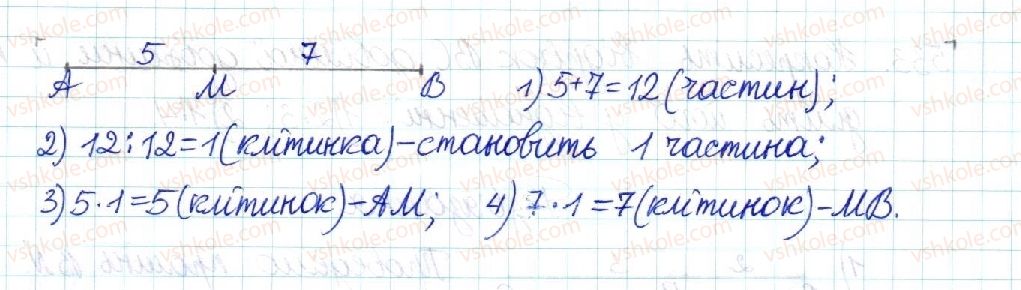 5 7
А М В 1) 5+7=12 (частин);
2) 12:12=1 (клітинка) – становить 1 частина;
3) 5·1=5 (клітинок) – АМ; 4) 7·1=7 (клітинок) – МВ.